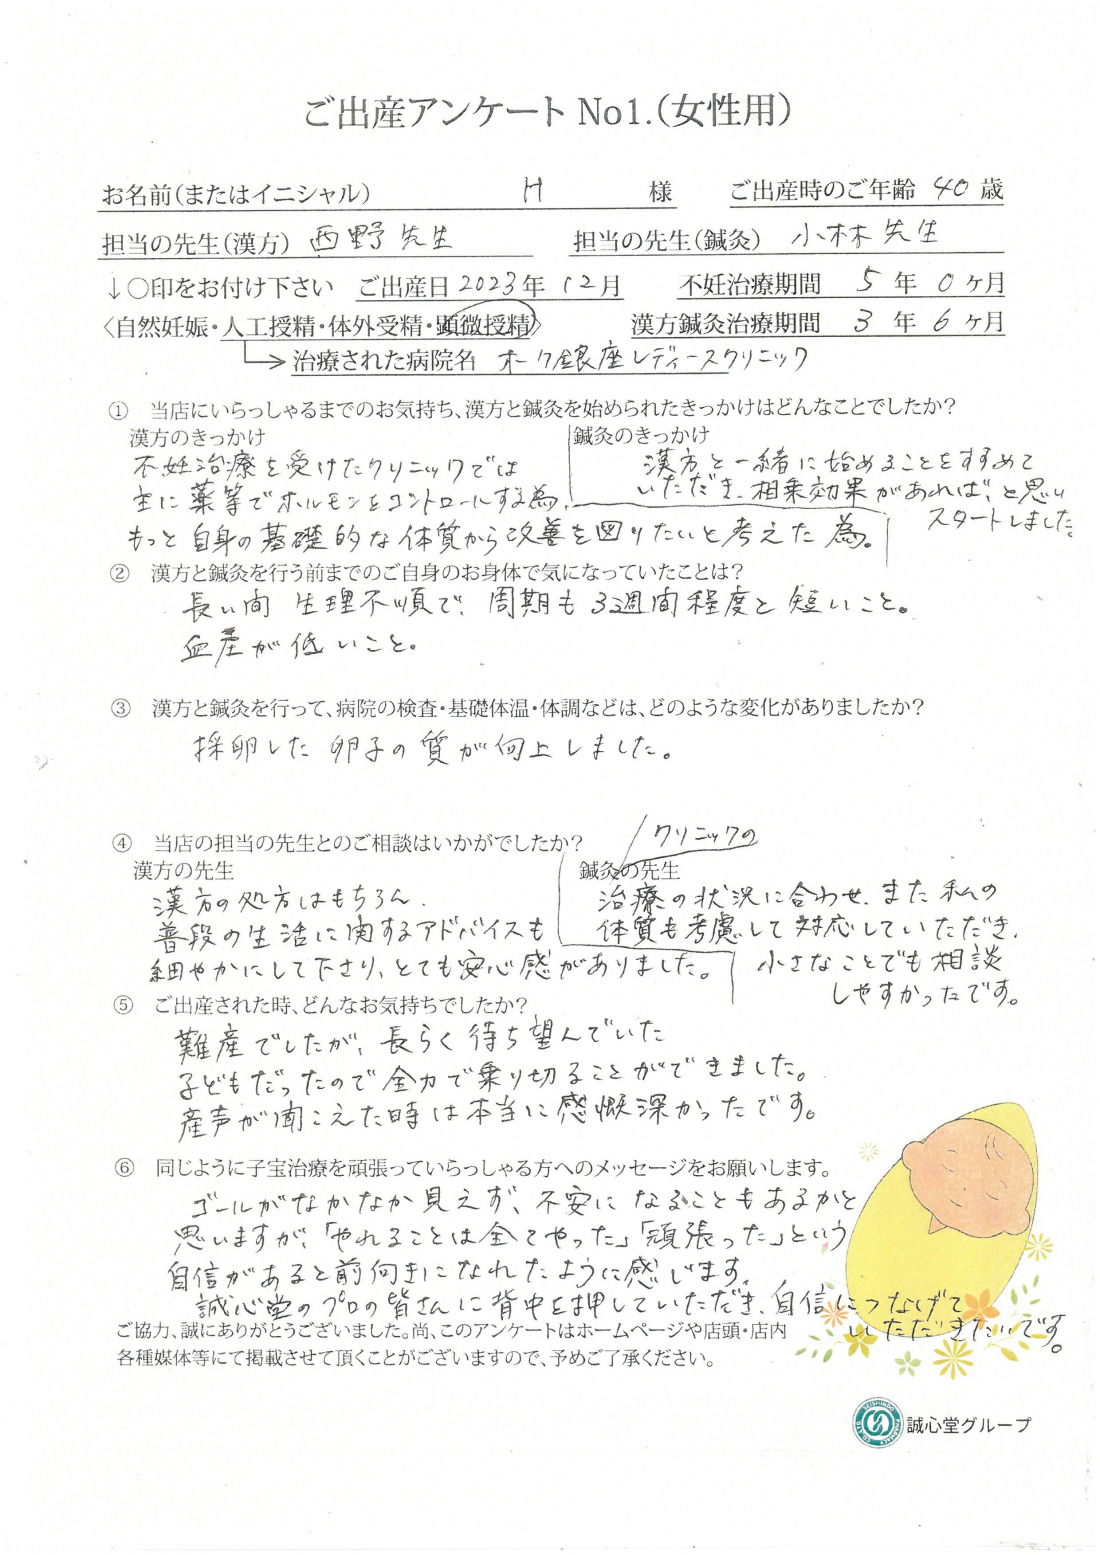 ご出産アンケート No1.(女性用)
お名前(またはイニシャル) H 様 ご出産時のご年齢 40 歳
担当の先生(漢方) 西野先生 担当の先生(鍼灸) 小林先生
↓○印をお付け下さい ご出産日 2023年 12月 不妊治療期間 5 年 0 ヶ月
〈自然妊娠・人工授精・体外受精・顕微授精〉 漢方鍼灸治療期間 3 年 6 ヶ月
治療された病院名 オーク銀座レディースクリニック
① 当店にいらっしゃるまでのお気持ち、漢方と鍼灸を始められたきっかけはどんなことでしたか?
漢方のきっかけ
不妊治療を受けたクリニックでは
主に薬等でホルモンをコントロールする為、
もっと自身の基礎的な体質から改善を図りたいと考えた為。
鍼灸のきっかけ
漢方と一緒に始めることをすすめて
いただき、相乗効果があれば、と思い
スタートしました。
② 漢方と鍼灸を行う前までのご自身のお身体で気になっていたことは?
長い間 生理不順で、周期も3週間程度と短いこと。
血圧が低いこと。
③ 漢方と鍼灸を行って、病院の検査・基礎体温・体調などは、どのような変化がありましたか?
採卵した卵子の質が向上しました。
④ 当店の担当の先生とのご相談はいかがでしたか?
漢方の先生
漢方の処方はもちろん、
普段の生活に関するアドバイスも
細やかにして下さり、とても安心感がありました。
鍼灸の先生
クリニックの
治療の状況に合わせ、また私の
体質も考慮して対応していただき、
小さなことでも相談
しやすかったです。
⑤ ご出産された時、どんなお気持ちでしたか?
難産でしたが、長らく待ち望んでいた
子どもだったので全力で乗り切ることができました。
産声が聞こえた時は本当に感慨深かったです。
⑥ 同じように子宝治療を頑張っていらっしゃる方へのメッセージをお願いします。
ゴールがなかなか見えず、不安になることもあるかと
思いますが、「やれることは全てやった」「頑張った」という
自信があると前向きになれたように感じます。
誠心堂のプロの皆さんに背中を押していただき、自信につなげて
いただきたいです。
ご協力、誠にありがとうございました。尚、このアンケートはホームページや店頭・店内
各種媒体等にて掲載させて頂くことがございますので、予めご了承ください。
誠心堂グループ